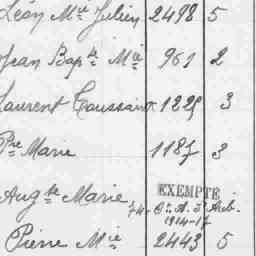 Léon Mie Julien 2498 5
Jean Bapte Mie 961 2
Laurent Toussaint 1229 3
Pre Marie 1187 3
Augte Marie EXEMPTÉ
74e Cie A. P. Arb.
1914-17
Pierre Mie 2443 5